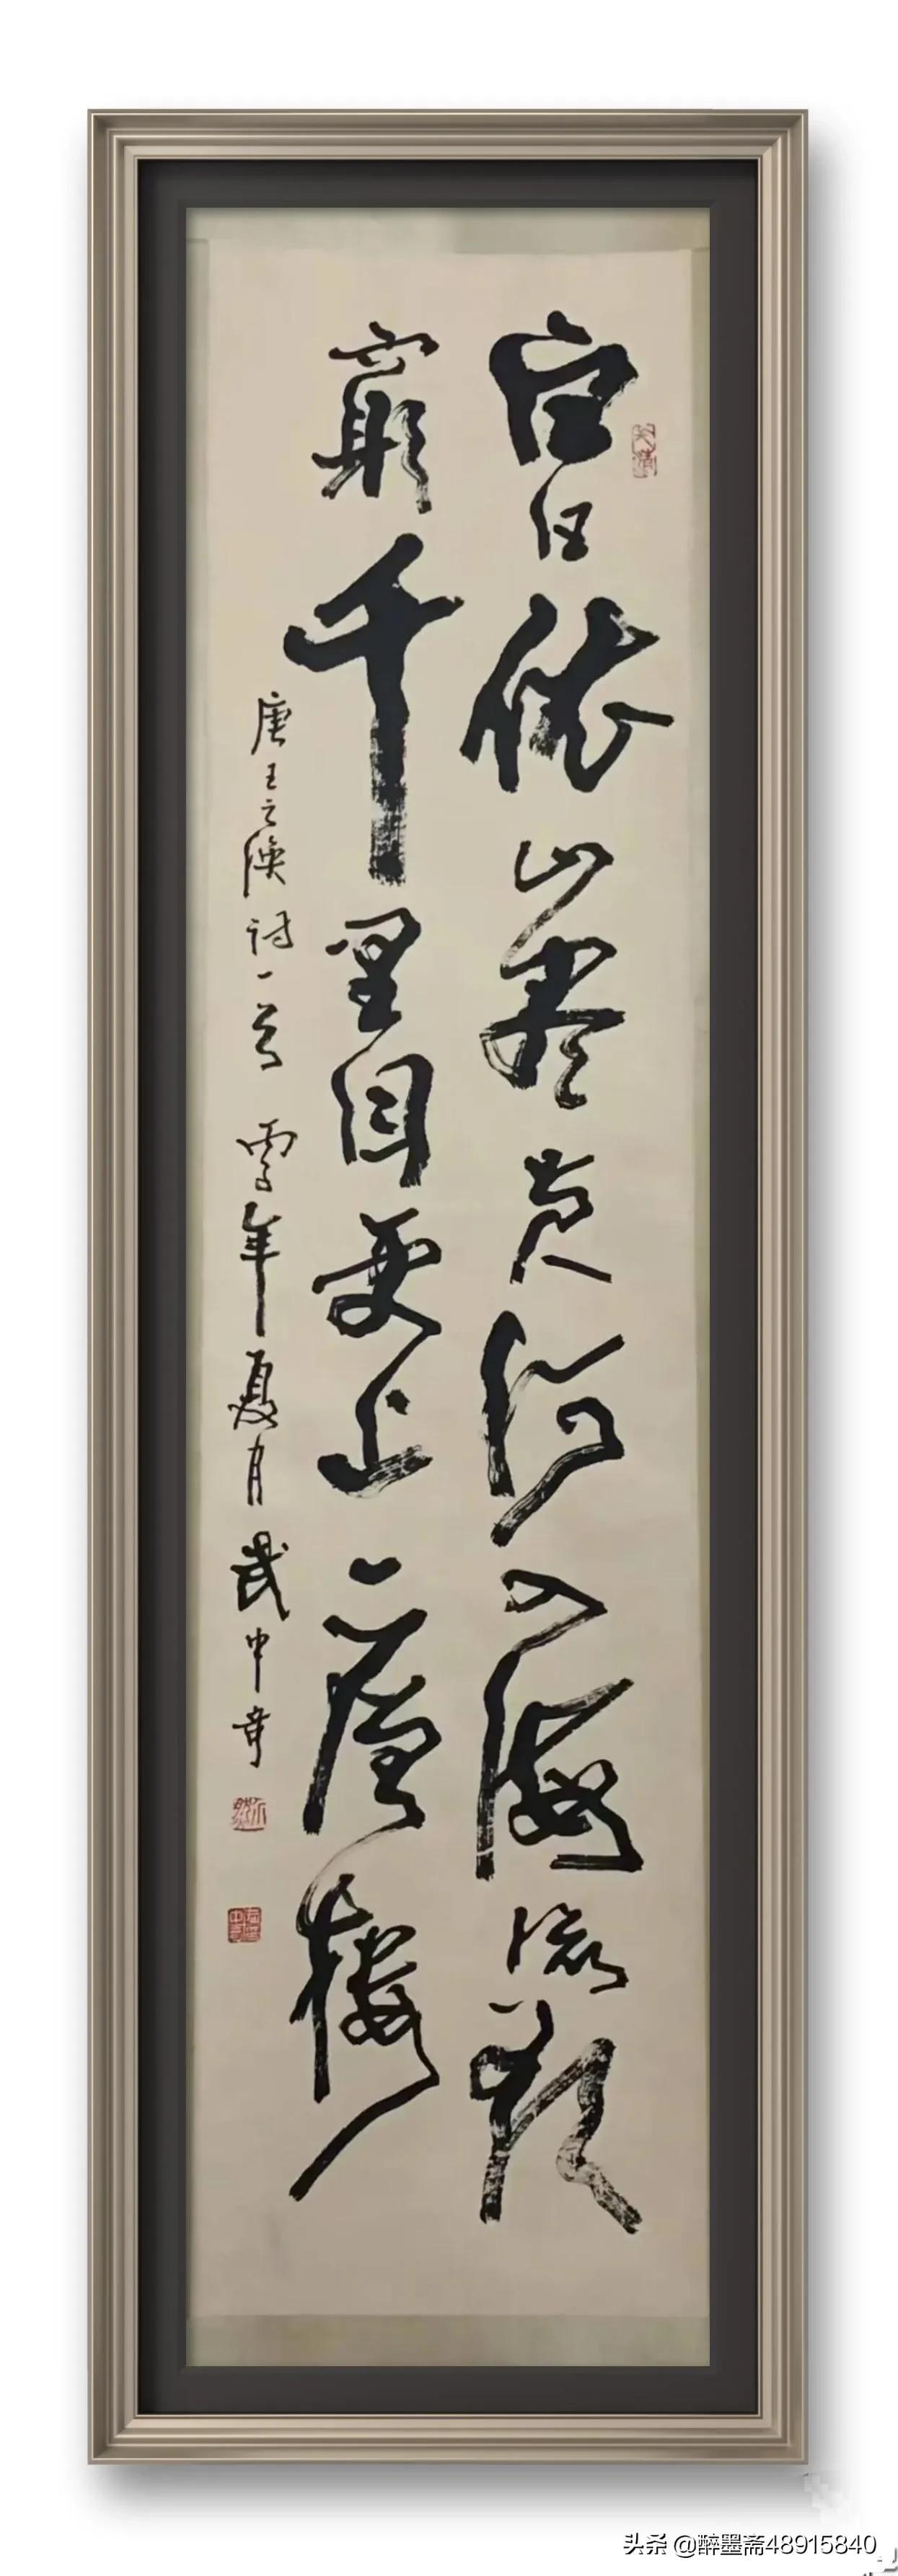 白日依山尽黄河入海流欲
穷千里目更上一层楼
唐王之涣诗一首 雪年夏月 武中奇
头条 @醉墨斋48915840